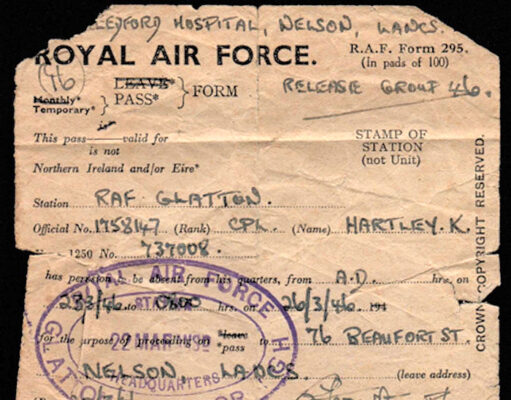 HOSPITAL, NELSON, LANCS.
ROYAL AIR FORCE.
R.A.F. Form 295.
(In pads of 100)
46
LEAVE*
Monthly*
Temporary*
PASS*
FORM
RELEASE GROUP 46.
is
This pass valid for
is not
Northern Ireland and/or Eire*
STAMP OF
STATION
(not Unit)
Station RAF GLATTON.
Official No. 1758147 (Rank) CPL. (Name) HARTLEY. K.
1250 No. 737008.
has permission to be absent from his quarters, from A.D. hrs. on
23/3/46 to hrs. on 26/3/46 194
for the purpose of proceeding on *leave
*pass
to 76 BEAUFORT ST.
NELSON, LANCS. (leave address)
ROYAL AIR FORCE
HEADQUARTERS
CROWN COPYRIGHT RESERVED.